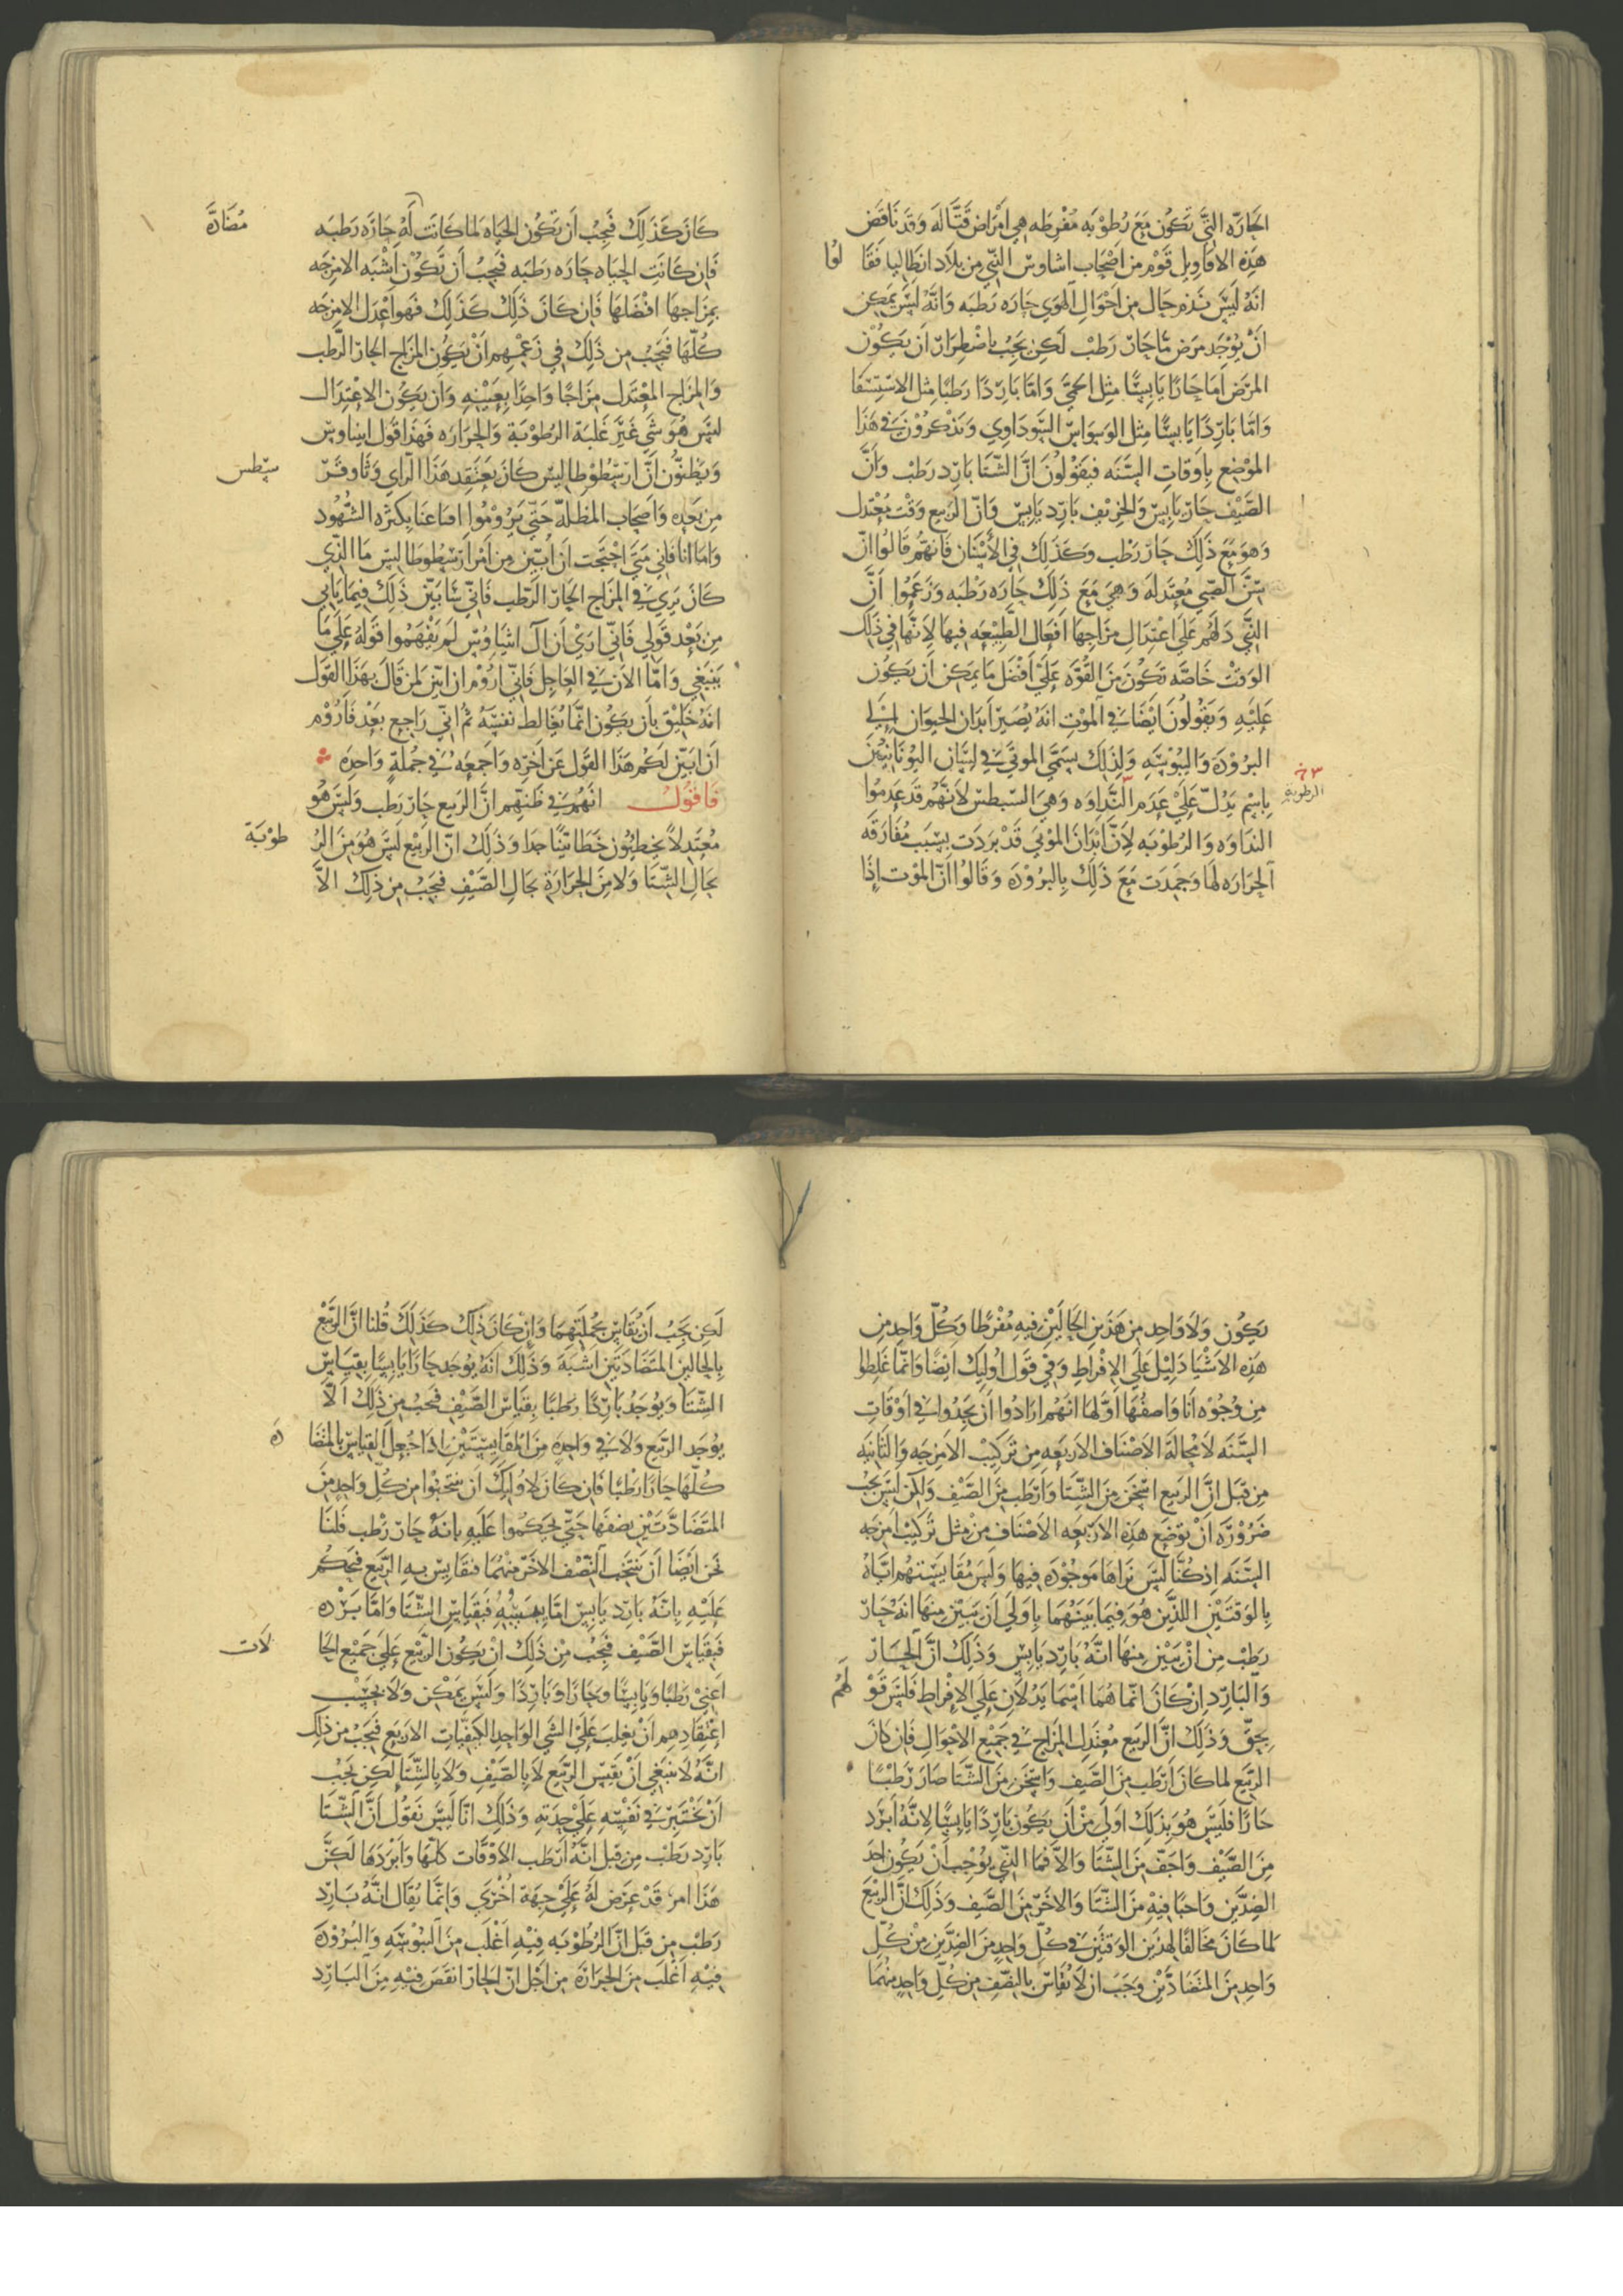 الحَارّه التَّي تَكوُن مَعَ رُطوْبَه مُفْرِطَه هِي اَمْرَاض قَتَّالَه وَقَد نَاقَض
هَذِه الاقَاوِيل قَوْم مِن اَصْحَاب اشاوس التّي مِن بِلاَد انطَاليا فقَا لوُا
انَهُ لَيْسَ شي مِن حَال مِن اَحْوَال الهَوَي حَارَه رَطبَه وَانَّه لَيْسَ يمَكِن
انْ يوُجَد مَرَض مّا حَارّ رَطبْ لَكِن يَجِبُ باِضْطِرَارّ اَن يَكُوْن
المرَضَ اِمَا حَارًا يَابِسًّا مثِل الحمّيَ وَامّا بَارِدًا رَطبًا مِثل الاسْتِسْقا
وَامّا بَارِدًا يَابسًّا مثِل الوَسوَاسّ السَّودَاوِي وَيَذْكرُوْن في هَذَا
الموْضِع باَوقَاتِ السَّنَه فيَقوُلوُنَ انَّ الشّتَا بَارِد رَطبْ وَانَّ
الصَّيْف حَارّ يَابِسّ وَالخرِيْف بَارِد يَابِسّ وَانّ الرَبيع وَقْت مُعْتدِل
وَهوَ مَعَ ذَلِكَ حَارّ رَطب وكذَلِكَ فِي الأسْنَان فَانهَّمُ قَالوُا انّ
سنَّ الصّبِي مُعتدِلَه وَهيَ مَعَ ذَلِكَ حَارَه رَطْبَه وَزَعَمُوا اَنَّ
التَّي دَلَهُم عَلَى اعْتدِالِ مزَاجِهَا اَفعَال الطَّبيْعَه فِيهَا لِاَنهَّا فِي ذَلِكَ
الوَقْتْ خَاصَّه تَكوُنَ مِنَ القُوَّه عَلَيْ اَفْضَل مَا يمَكِن اَن يَكوُن
عَليْهِ وَيَقوُلوُنَ اَيْضًا فِي الموَْتِ انهَُ يُصَيرّ اَبدَان الحيوَان اِلَي
البرُوْدَه وَاليُبوْسَه وَلِذَلِكَ يسَمّي الموتَيَ في لِسَان اليوُنَانيْينَ
باِسْم يَدُلّ عَليْ عَدَم النَّدَاوَه وَهيَ السّيطس لاَنهَّمُ قَد عَدِموُا
الرطوبة
النَدَاوَه وَالرُطوْبَه لاِنّ اَبْدَانَ الموْتيَ قَدْ بَرَدَت بسَبَب مُفَارَقَه
الحَرَارَه لهَا وَجمَدَت مَعَ ذَلِكَ بِالبرُوْدَه وَقَالوُا انّ الموْت اِذَا
كَانَ كَذَلِكَ فَيجِبُ اَن تَكوُن الحيَاه لما كَانَت لَهُ مُضَادَّه حَارَّه رَطبَه
فَاِن كَانَتِ الحيَاه حَارَه رَطبَه فَيجِبُ اَن تَّكوُن اَشْبَه الامزِجَه
بمِزَاجهَا افْضَلهَا فَاِن كَانَ ذَلِكَ كَذَلِكَ فهَو اَعْدَل الامزِجَه
كُلّهَا فَيجَبُ من ذَلِكَ في زَعْمِهِم اَنْ يكُون المزاج الحارّ الرَّطب
وَالمزَاج المعْتَدِل مزَاجًا وَاحِدًا بِعَيْنِهِ وَاَن يَكُون الاعْتِدَال
ليْس هُوَ شَي غَيْر غَلَبَة الرُطوْبَةِ وَالحَرَارَه فهَذَا قَول ايناوسّ
وَيَظنُّون اَنَّ ارَسْطوُطاليسّ كَانَ يَعتَقِد هَذَا الَراي وَثاوفرَ سطِس
مِن بَعدِه وَاَصحَاب المظلّه حَتَّي يَرُوْمُوا اقنَاعَنَا بكَثره الشُّهوُد
وَامَا اَنا فَاِني مَتيَ احْتَجت اَن اُبيّن مِن اَمْر اَرَسْطوطَاليس مَا الذّي
كَانَ يَرَي في المزَاج الحارّ الرَطْب فَانّي سَابيّن ذَلِكَ فِيمَا يَاتي
مِن بَعْد قَولي فَانّي ارَيْ اَن آل اثيَاوسْ لَم يَفْهَمُوا قَولَهُ عَلَي مَا
يَنبَغِي وَامّا الآن في العَاجِل فَانّي ارُوْم ان ابيّن لمن قَالَ بهَذا القوْل
انَهُ خَلِيْق بِاَن يَكوُن انمّا يُغَالط نفسَهُ ثمُ اني رَاجِع بَعْد فَارُوْم
اَن ابَيّن لكمُ هَذَا القَوْل عَن اَخِرِه وَاجمَعهُ في جُملَةٍ وَاحِدَه
فاقَوُل انهَّم في ظَنّهِم انَّ الرَبيع حَارّ رَطب وَليْسَ هُو
مُعتَدِلاً يخطِئُون خَطَا بَيّنًا جدا وَذَلِكَ انّ الرَبيْع لَيْسَ هُوَ مِنَ الرُ طوْبَة
بحَالِ الشّتَا وَلا مِنَ الحرَارَةِ بحَالِ الصّيْفِ فيَجَبُ مِن ذَلِكَ الاَّ
يَكوُن وَلاَ وَاحِد مِن هَذَين الحالَينِ فيهِ مُفْرطًا وَكُلّ وَاحِد مِن
هَذِه الاَشْيَا دَلِيْل عَلَي الاِفْراطِ وَفي قَول اُوليِك اَيضًا وَانمّا غَلِطوا
مِن وُجُوْه اَنا وَاصِفُهَا اَوَّلها انَهُم ارَادُوا اَن يجَدُوا في اَوقَاتِ
السَّنَه لاَ محَالَة الاَصْنَاف الاَربَعه مِن تَركِيْب الاَمزِجَه وَالثانيَه
مِن قِبَل انَّ الرَبيع اسْخَنَ مِنَ الشّتَا وَاَرَطَب مِنَ الصَّيْف وَلكِن ليْسَ يجَب
ضَرُوْرَه اَنْ توُضَع هَذِه الارَبَعَه الاَصْنَاف مِنْ مثِل تَركِيْب امزِجَه
السَّنَه اِذ كُنَّا ليْسَ نَرَاهَا مَوجوُدَه فيِهَا وَليْسَ مُقَايَسَتهُم ايّاهُ
بِالوَقتَيْن اللذَين هُوَ فيمَا بيَنهُمَا باِولَي اَن يَبَيّن مِنهَا اَنهُ حَارّ
رَطبْ مِن اَنْ يَبيّن مِنهَا انَّهُ بَارِد يَابِس وَذَلِكَ انَّ الحَارّ
وَالبَارِد اِن كَانَ انمّا همُا اسْمَا يَدُلاّن عَلَي الاِفرَاط فَليْسَ قوْ لهُم
بحَقّ وَذَلِكَ انَّ الرَبيع مُعتَدِل المزَاج فِي جمَيْع الاحْوَال فَان كانَ
الرَّبيع لما كَانَ اَرَطَب مِنَ الصَّيف وَاسْخَن مِنَ الشّتَا صَارَ رَطْبًا
حَارًا فَليْسَ هُوَ بذَلِكَ اولَى مِنْ اَن يَكوُن بَارِدًا يَابِسًا لِانَّهُ اَبرَد
مِنَ الصَّيْف وَاجَفّ مِنَ الشّتَا وَالاَّ فمَا الذّي يوُجِب اَنْ يَكوُن احَد
الضِدَّين وَاجبًا فِيْهِ مِنَ الشّتَا وَالاخَر مِنَ الصَّيف وَذَلِكَ انَّ الربيْع
لمَا كَانَ مخَالفًا لهِذَين الوَقتَيْن في كُلّ وَاحِدٍ مِنَ الضِدَّين مِنْ كُلّ
وَاحِدٍ مِنَ المتَضَادَّيْنِ وَجَبَ ان لاَ يُقَاسّ بِالنصْف مِن كُلّ وَاحِدٍ مِنهُمَا
لَكِن يجَبُ اَن يُقَاسّ بجُملَتِهِمَا وَاِن كَانَ ذَلِكَ كَذَلِكَ قُلنَا انَّ الرَبيْع
باِلحالَين المتَضَادَتَين اَشْبَهَ وَذَلِكَ اَنهُ يوُجَد حَارًا يَابِسًا بِقِيَاسّ
الشّتَا وَيوُجَدُ بَارِدًا رطبًا بقِيَاسّ الصَّيْف فَيجَبُ مِن ذَلِكَ الاَّ
يوُجَد الرَبيْع وَلاَ في وَاحِدَه مِنَ المقَايسَتَيْن اِذَا جُعِلَ القِيَاسّ بِالمتضَا دَه
كُلّهَا حَارًا رَطْبًا فَاِن كَانَ لاوليِكَ اَن يَنتَخبُوا مِن كُلّ وَاحِدٍ مِنَ
المتَضَادَّتَيْن نِصْفَهَا حَتَّي يحكُموا عَلَيهِ باِنَهُ حَارّ رَطْب فَلنَا
نَحن ايَضًا اَن نَنتَخِب النّصْف الاخَر مِنْهُمَا فنقَايِسّ بِهِ الرَبيْع فنَحكُم
عَلَيْهِ بِاَنَّهُ بَارِد يَابِسّ اِمّا يُبْسُهُ فَبقِيَاسّ الشّتَا وَاَمّا بَرْدُه
فَبقِيَاسّ الصَّيْف فَيجِبُ مِنْ ذَلِكَ انْ يَكوُن الرَبيْع عَليَ جَميْع الحا لاَت
اَعنِيْ رَطبًا وَيَابِسًا وَحَارًا وَبَارِدًا وَليْسَ يمَكْن وَلاَ بحَسْب
اعْتِقَادِهِم اَنْ يغلِبَ عَليْ الشَّي الوَاحِد الكَيفِيّات الاربَع فَيجَبُ مِن ذَلِكَ
انَّهُ لاَ ينَبَغِي اَنْ يَقيس الرَبيْع لاَ بِالصَّيْفِ وَلاَ بِالشّتَا لكَنْ يجَبُ
اَنْ يخْتَبرَ في نَفْسِهِ عَليْ حِدَتِهِ وَذَلِكَ انّا لَيْسَ نَقوُل اَنَّ الشّتَا
بَارِد رَطْب مِن قِبَل انَّهُ اَرَطَب الاوْقَات كلّهَا وَاَبْرَدَهَا لَكِنَّ
هَذَا امر قَدْ عَرَض لَهُ عَلَيْ جِهَة اُخْرَي وَانمّا يُقَال انَّهُ بَارِد
رَطْب مِن قِبَل انَّ الرُطوْبَه فِيْهِ اَغْلَب مِنَ اليُبوْسَه وَالبرُوْدَه
فيْهِ اَغْلَب مِنَ الحَرَارَة مِن اَجْل انّ الحارّ انقَص فِيْهِ مِنَ البَارِد